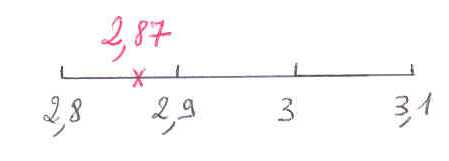 2,87
2,8 2,9 3 3,1